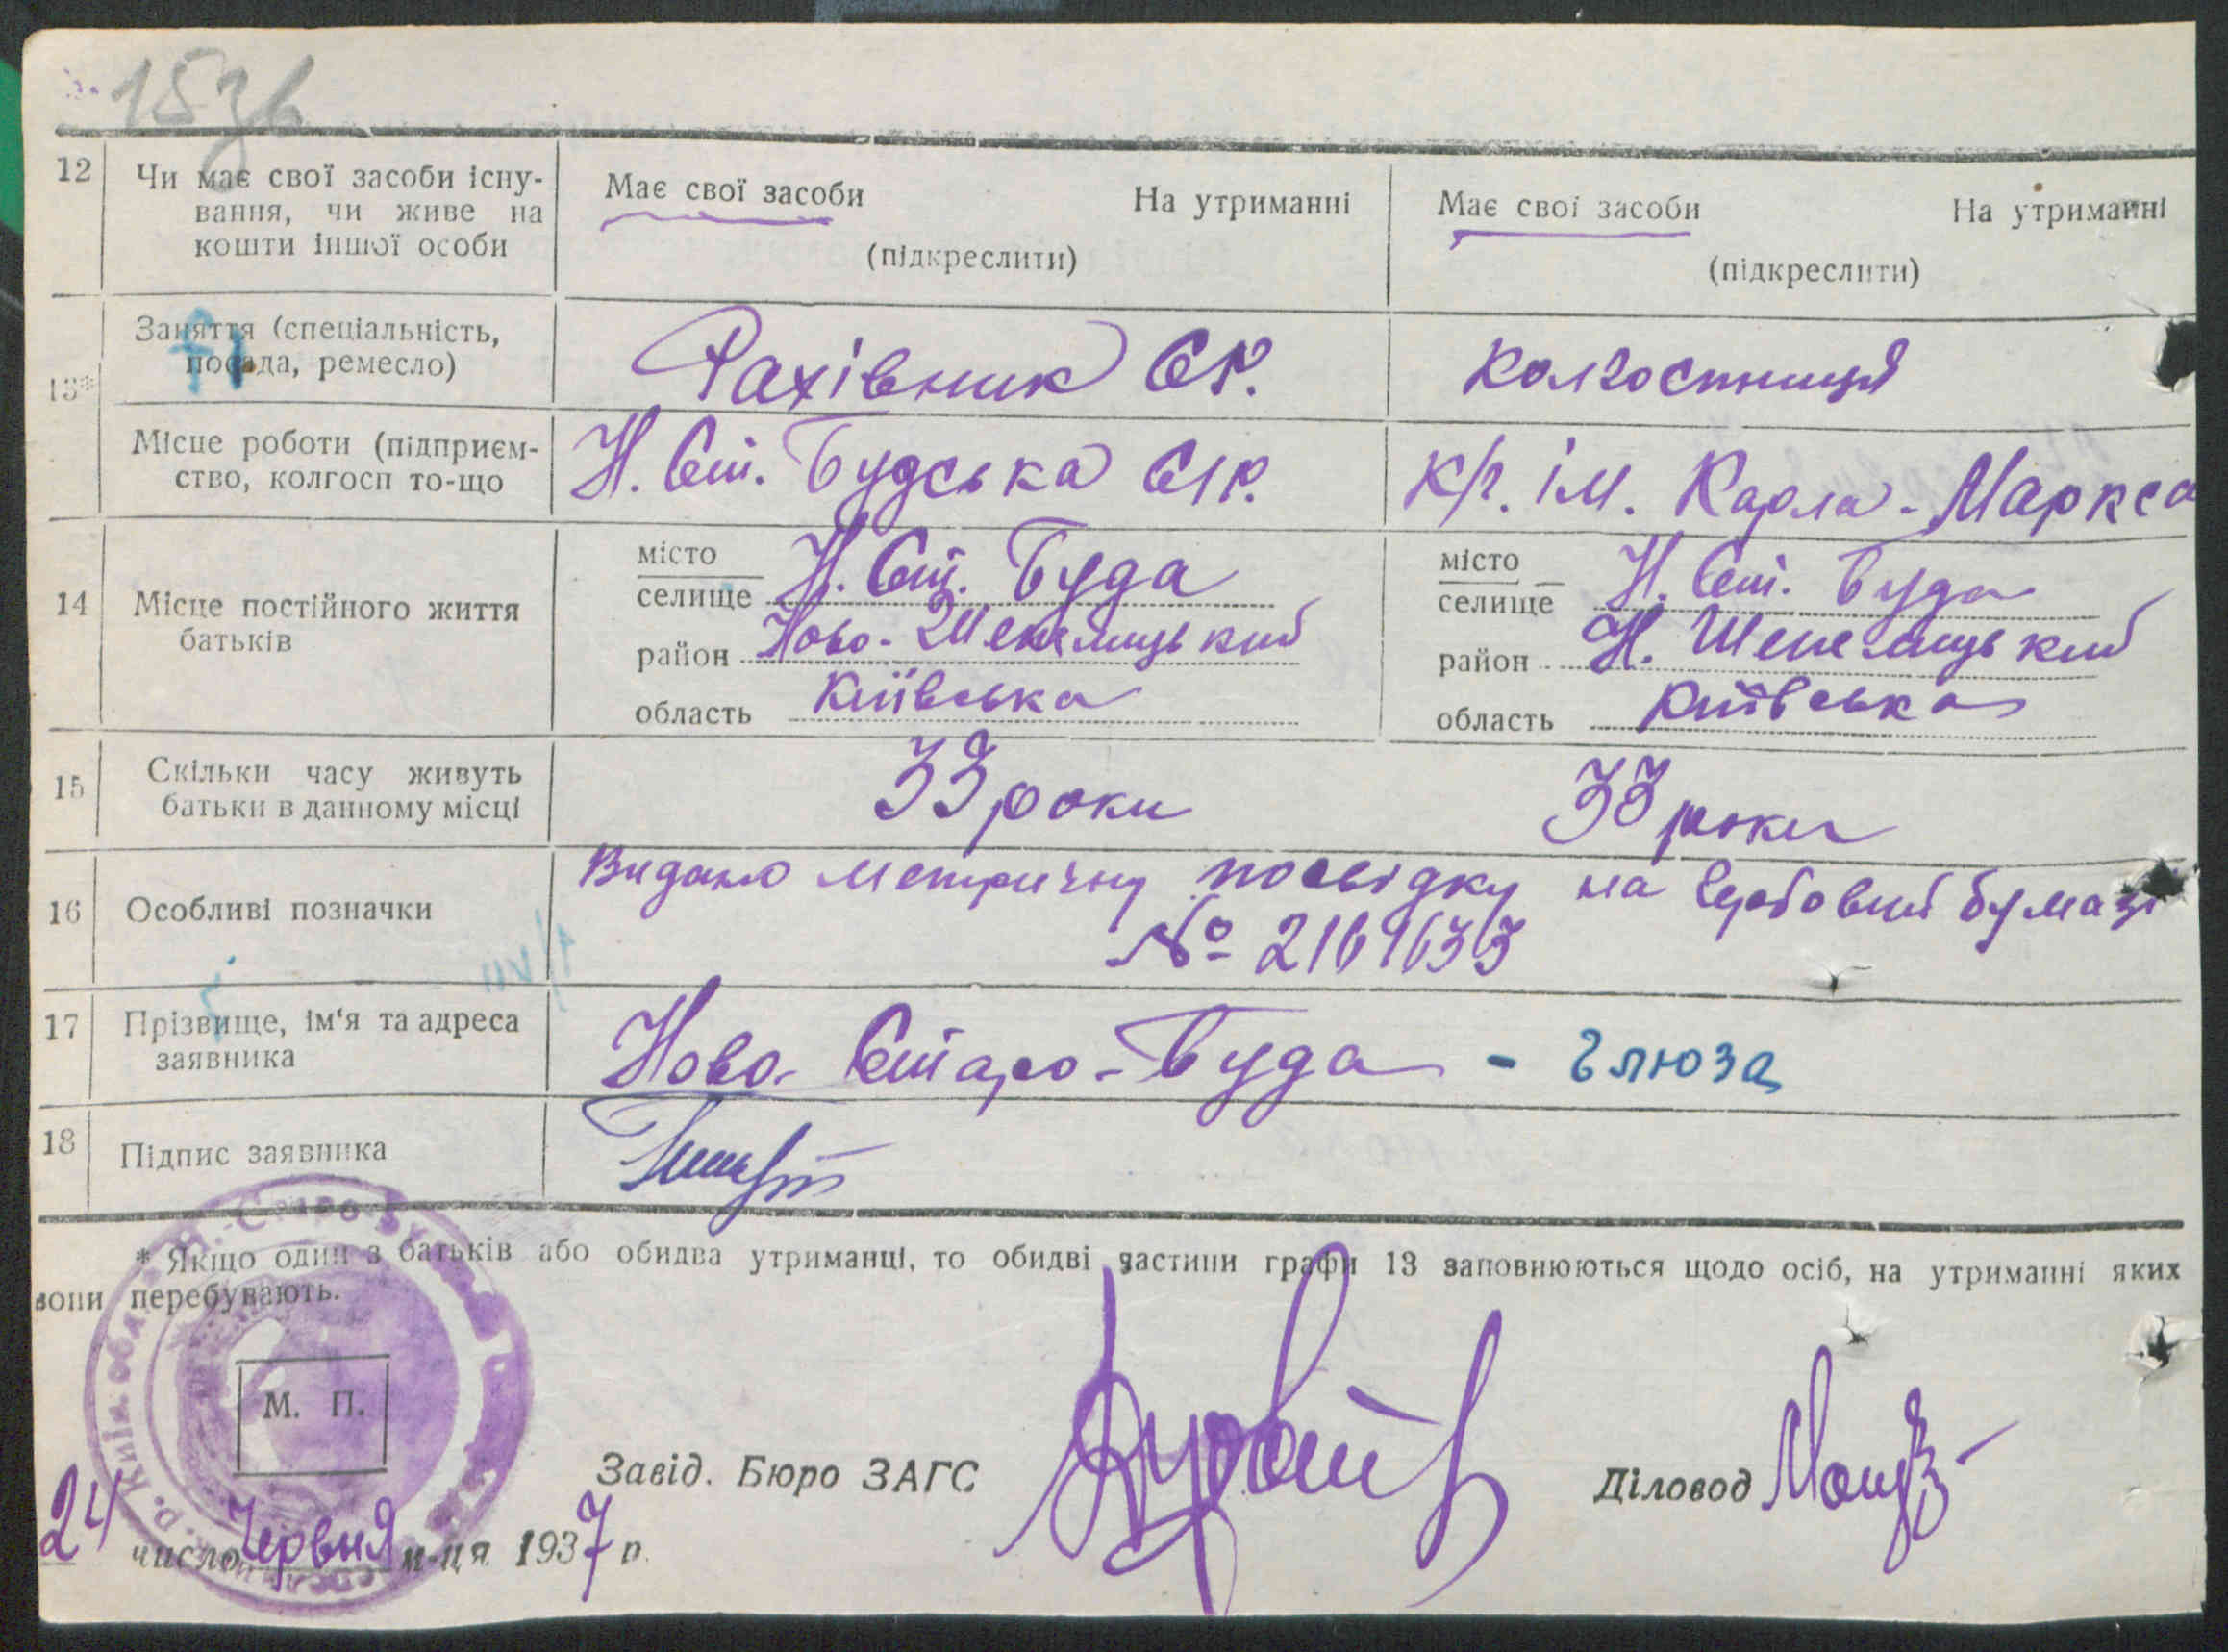 15зв
12 Чи має свої засоби існу-
вання, чи живе на
кошти іншої особи
Має свої засоби На утриманні
(підкреслити)
Має свої засоби На утриманні
(підкреслити)
13*
Заняття (спеціальність,
посада, ремесло)
Рахівник СР.
колгоспниця
Місце роботи (підприєм-
ство, колгосп то-що
Н. Ст. Будська С/Р.
К/г. ім. Карла-Маркса
14 Місце постійного життя
батьків
місто
селище Н. Ст. Буда
район Ново-Шепелицький
область Київська
місто
селище Н. Ст. Буда
район Н. Шепелицький
область Київська
15 Скільки часу живуть
батьки в данному місці
33 роки
33 роки
16 Особливі позначки
Видано метричну посвідку на Гербовий бумазі
№ 2169633
17 Прізвище, ім'я та адреса
заявника
Ново-Старо-Буда - Глюза
18 Підпис заявника
* Якщо один з батьків або обидва утриманці, то обидві частини графи 13 заповнюються щодо осіб, на утриманні яких
вони перебувають.
М. П.
Завід. Бюро ЗАГС
Діловод
24 число Червня м-ця 1937 р.